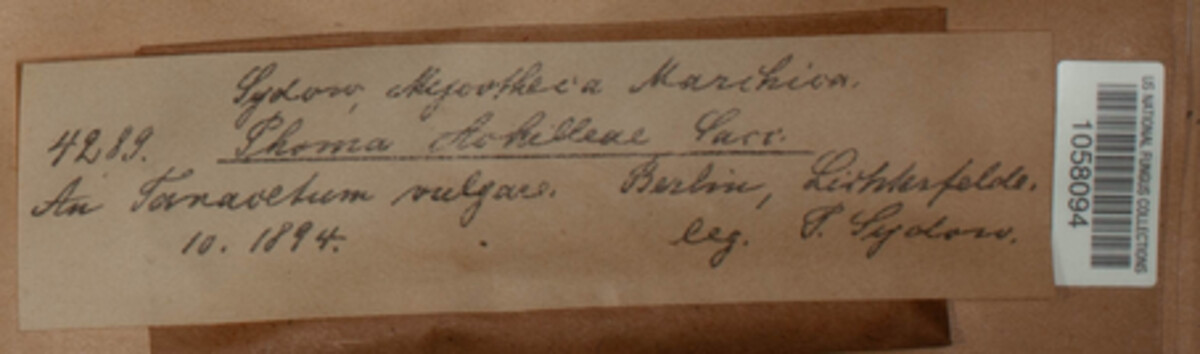 Sydow, Mycotheca Marchica.
4289. Phoma Achilleae Sacc.
An Tanacetum vulgare. Berlin, Lichterfelde.
10. 1894. leg. P. Sydow.
US NATIONAL FUNGUS COLLECTIONS
1058094